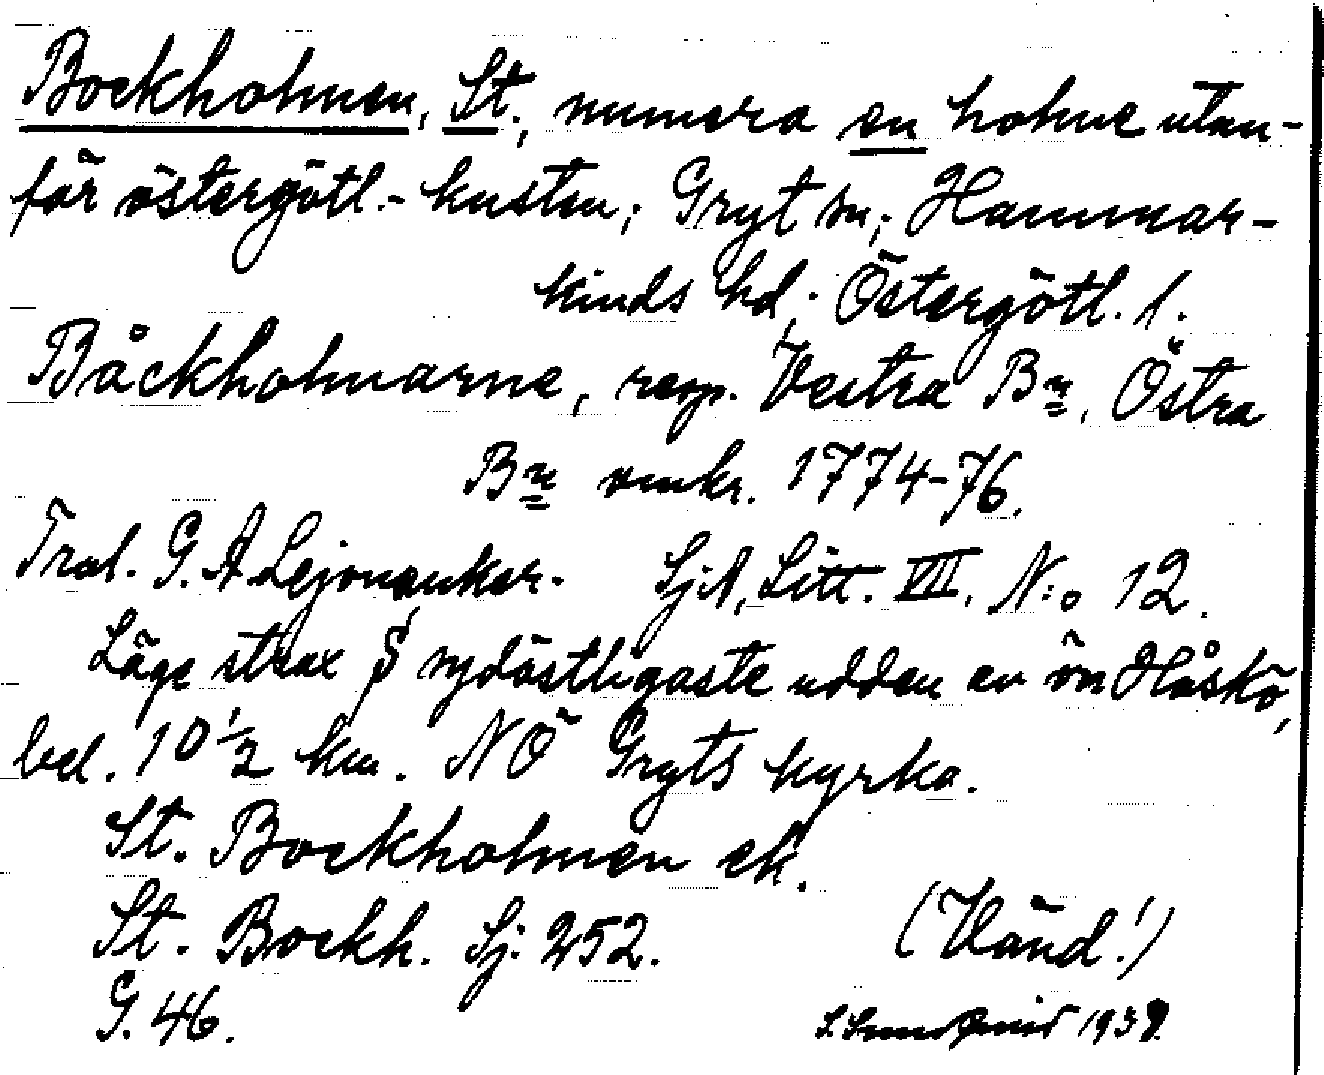 Bockholmen, St., numera en holme utan-
för östergötl.- kusten; Gryt sn; Hammar-
kinds hd; Östergötl. l.
Båckholmarne, resp. Vestra Bn, Östra
Bn omkr. 1774-76.
Trol. G. A Lejonanker. SjA, Litt. VII. N:o 12.
Läge strax S sydöstligaste udden av ön Håskö,
bel. 10 1/2 km. NÖ Gryts kyrka.
St. Bockholmen ek.
St. Bockh. Sj. 252. (Vänd!)
G. 46. 1939.